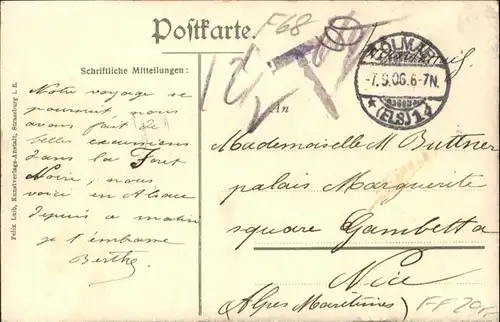 Postkarte.
F68
T
COLMAR
-7.9.06.6-7N.
* (ELS) 1 d
Schriftliche Mitteilungen:
An
Notre voyage se
poursuit nous
avons fait de
belles excursions
dans la Forêt
Noire, nous
voici en Alsace
depuis ce matin
je t'embrasse
Berthe
Mademoiselle M Buttner
palais Marguerite
square Gambetta
Nice
Alpes Maritimes)
Felix Luib, Kunstverlags-Anstalt, Strassburg i. E.